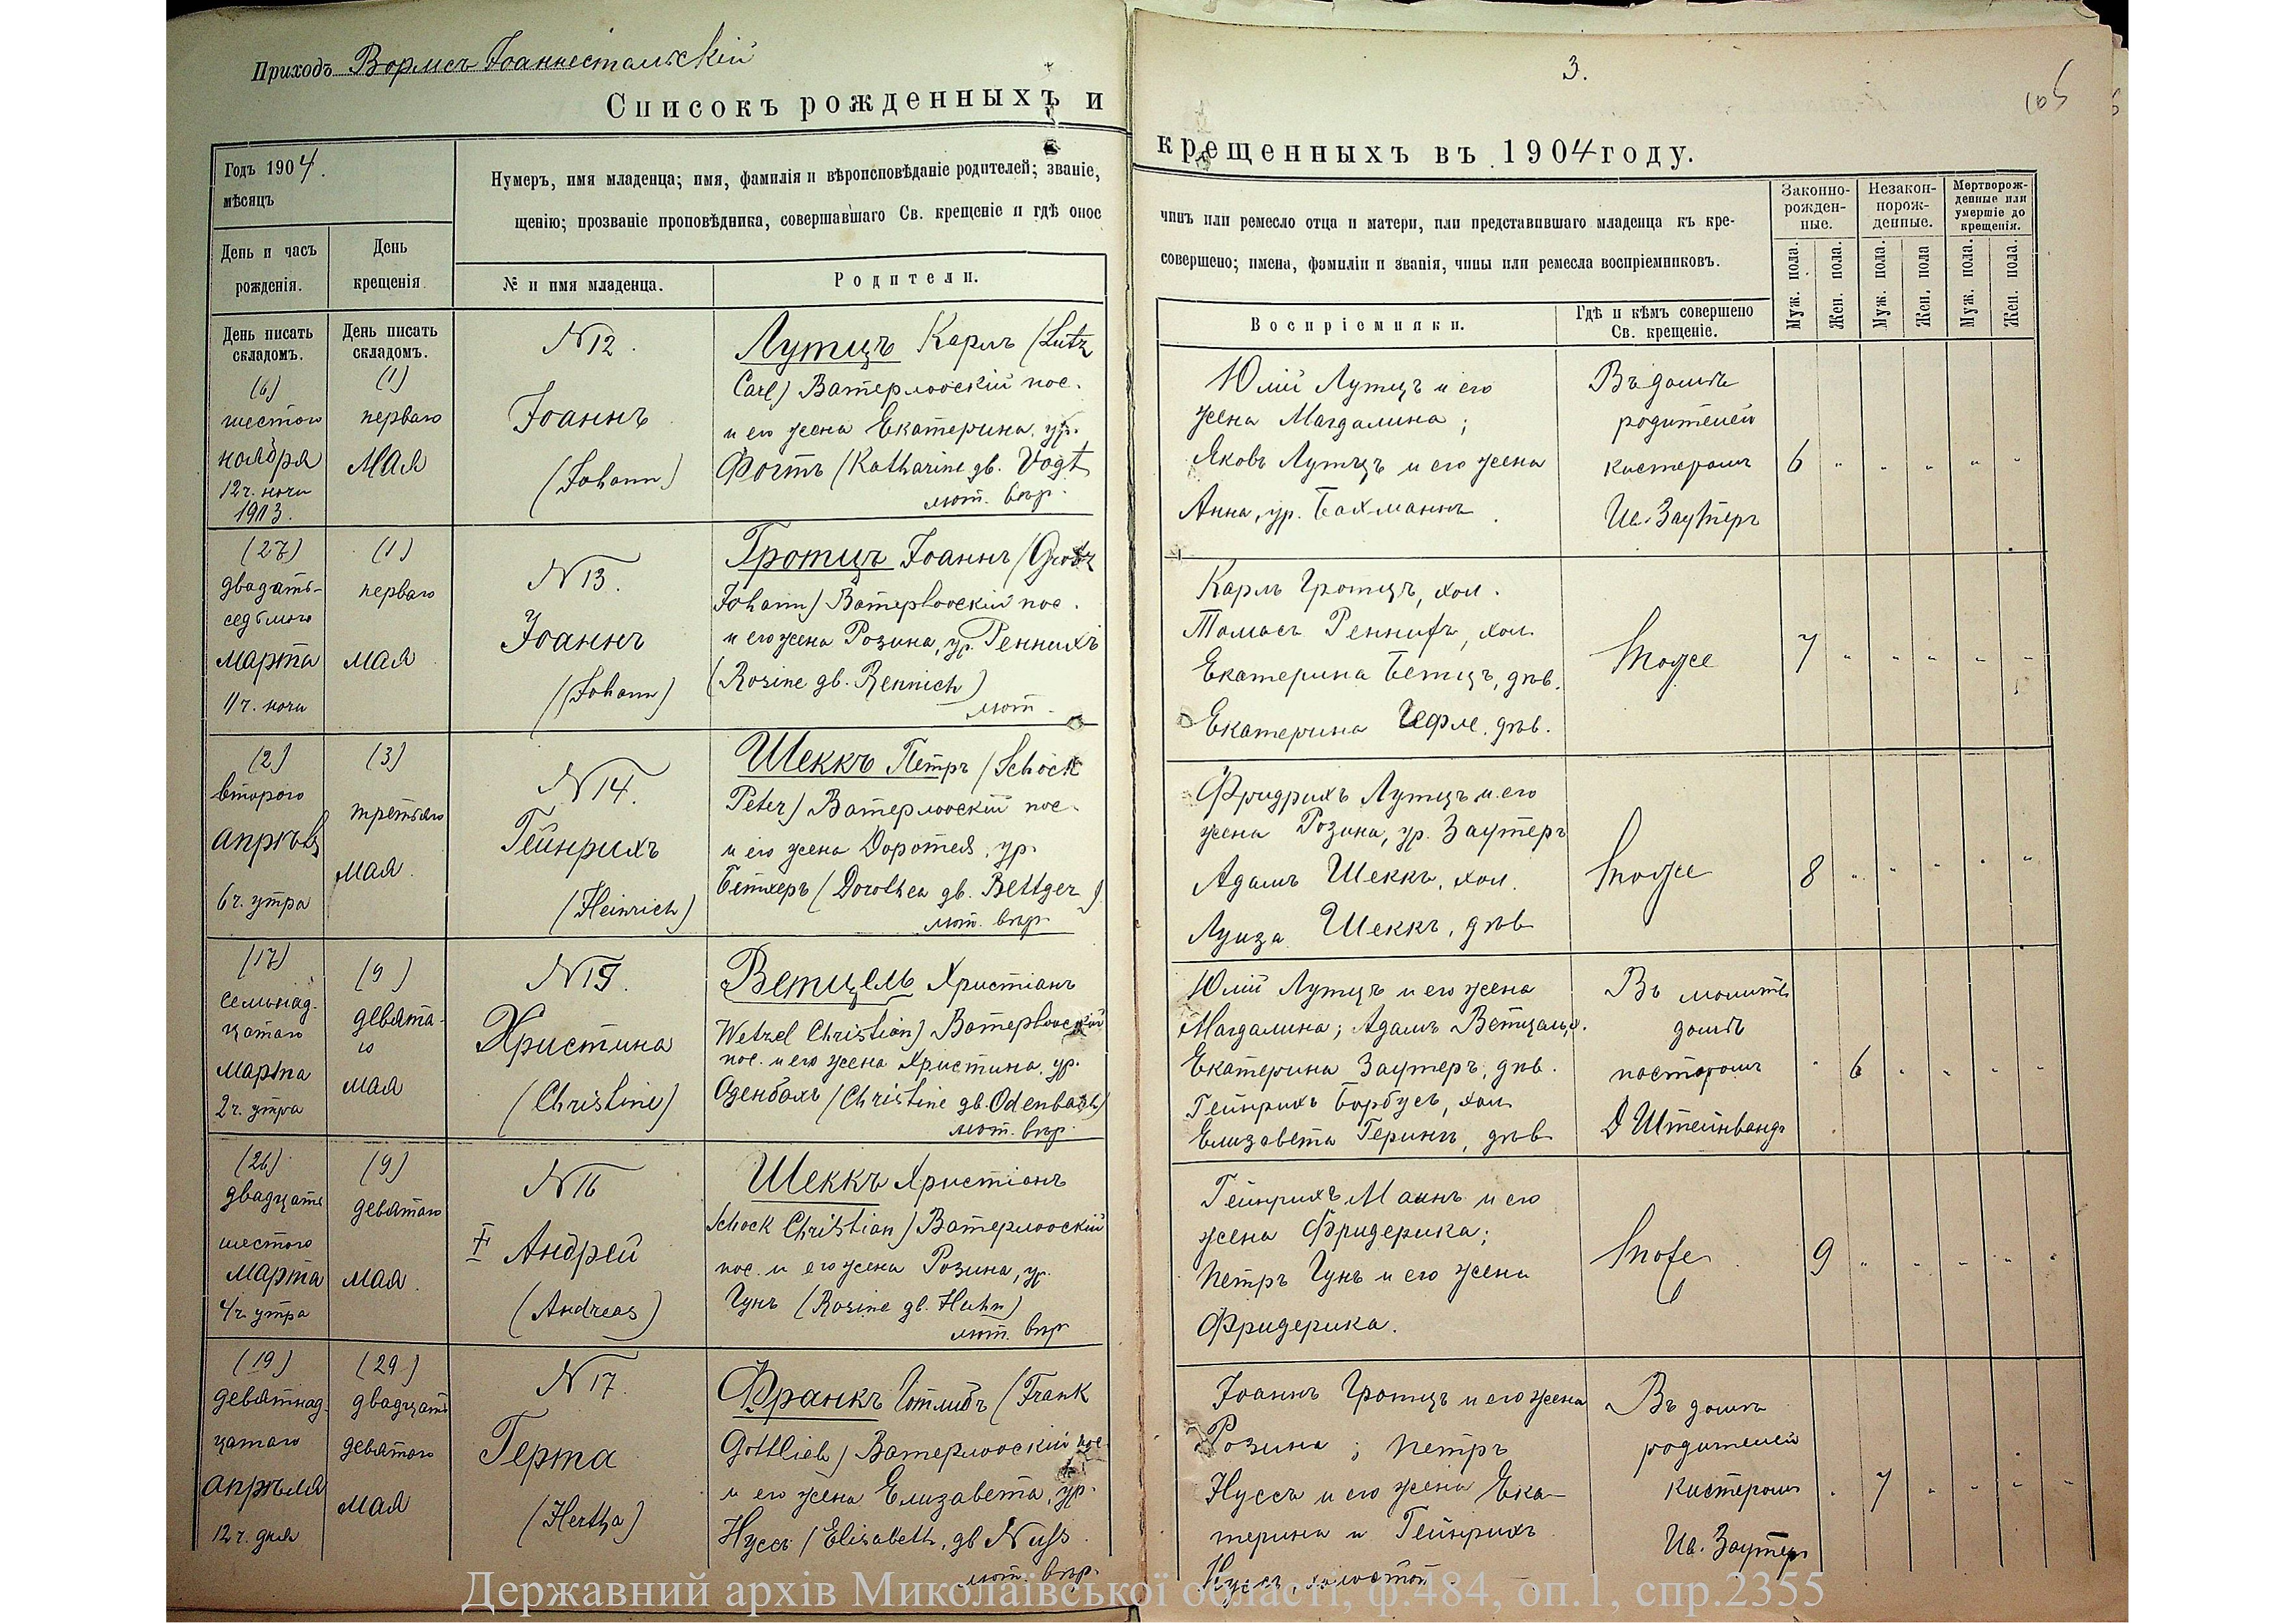 Приходъ Вормсъ Іоаннестальскій
3.
105
Списокъ рожденныхъ и
крещенныхъ въ 1904 году.
Годъ 1904.
мѣсяцъ
День и часъ
рожденія.
День
крещенія.
Нумеръ, имя младенца; имя, фамилія и вѣроисповѣданіе родителей; званіе,
щенію; прозваніе проповѣдника, совершавшаго Св. крещеніе и гдѣ оное
№ и имя младенца.
Родители.
чинъ или ремесло отца и матери, или представившаго младенца къ кре-
совершено; имена, фамиліи и званія, чины или ремесла воспріемниковъ.
Воспріемники.
Гдѣ и кѣмъ совершено
Св. крещеніе.
Законно-
рожден-
ные.
Незакон-
норож-
денные.
Мертворож-
денные или
умершіе до
крещенія.
Муж. пола.
Жен. пола.
Муж. пола.
Жен. пола
Муж. пола.
Жен. пола.
День писать
складомъ.
День писать
складомъ.
(6)
шестого
ноября
12 ч. ночи
1903.
(1)
перваго
мая
N 12.
Іоаннъ
(Johann)
Лутцъ Карлъ (Lutz
Carl) Ватерлооскій пос.
и его жена Екатерина, ур.
Фогтъ (Katharine gb. Vogt
лют. вѣр.
Юлій Лутцъ и его
жена Магдалина;
Яковъ Лутцъ и его жена
Анна, ур. Бахманнъ
Въ домѣ
родителей
кистеромъ
Ив. Заутеръ
6
(27)
двадцать-
седьмого
марта
11 ч. ночи
(1)
перваго
мая
N 13.
Іоаннъ
(Johann)
Гротцъ Іоаннъ (Grotz
Johann) Ватерлооскій пос.
и его жена Розина, ур. Реннихъ
(Rosine gb. Rennich)
лют.
Карлъ Гротцъ, хол.
Томасъ Реннихъ, хол.
Екатерина Бетцъ, дѣв.
Екатерина Гефле, дѣв.
Тоже
7
(2)
второго
апрѣля
6 ч. утра
(3)
третьяго
мая.
N 14.
Гейнрихъ
(Heinrich)
Шеккъ Петръ (Schock
Peter) Ватерлооскій пос.
и его жена Доротея, ур.
Бетхеръ (Dorothea gb. Bettger)
лют. вѣр.
Фридрихъ Лутцъ и его
жена Розина, ур. Заутеръ
Адамъ Шеккъ, хол.
Луиза Шеккъ, дѣв
Тоже
8
(17)
семьнад-
цатаго
марта
2 ч. утра
(9)
девята-
го
мая
N 15.
Христина
(Christine)
Ветцель Христіанъ
Wetzel Christian) Ватерлооскій
пос. и его жена Христина, ур.
Оденбахъ (Christine gb. Odenbach)
лют. вѣр.
Юлій Лутцъ и его жена
Магдалина; Адамъ Ветцель, х.
Екатерина Заутеръ, дѣв.
Гейнрихъ Борбусъ, хол.
Елизавета Герингъ, дѣв.
Въ молитв.
домѣ
пасторомъ
Д Штейнвандъ
6
(26)
двадцать
шестого
марта
4 ч. утра
(9)
девятаго
мая.
N 16
Андрей
(Andreas)
Шеккъ Христіанъ
Schock Christian) Ватерлооскій
пос. и его жена Розина, ур.
Гунъ (Rosine gb. Huhn)
лют. вѣр
Гейнрихъ Маннъ и его
жена Фридерика;
Петръ Гунъ и его жена
Фридерика.
Тоже
9
(19)
девятнад-
цатаго
апрѣля
12 ч. дня
(29)
двадцать
девятаго
мая
N 17.
Герта
(Hertha)
Франкъ Готлибъ (Frank
Gottlieb) Ватерлооскій пос.
и его жена Елизавета, ур.
Нуссъ (Elisabeth, gb Nuss
лют. вѣр.
Іоаннъ Гротцъ и его жена
Розина; Петръ
Нуссъ и его жена Ека-
терина и Гейнрихъ
Нуссъ, холостой
Въ домѣ
родителей
кистеромъ
Ив. Заутеръ
7
Державний архів Миколаївської області, ф.484, оп.1, спр.2355